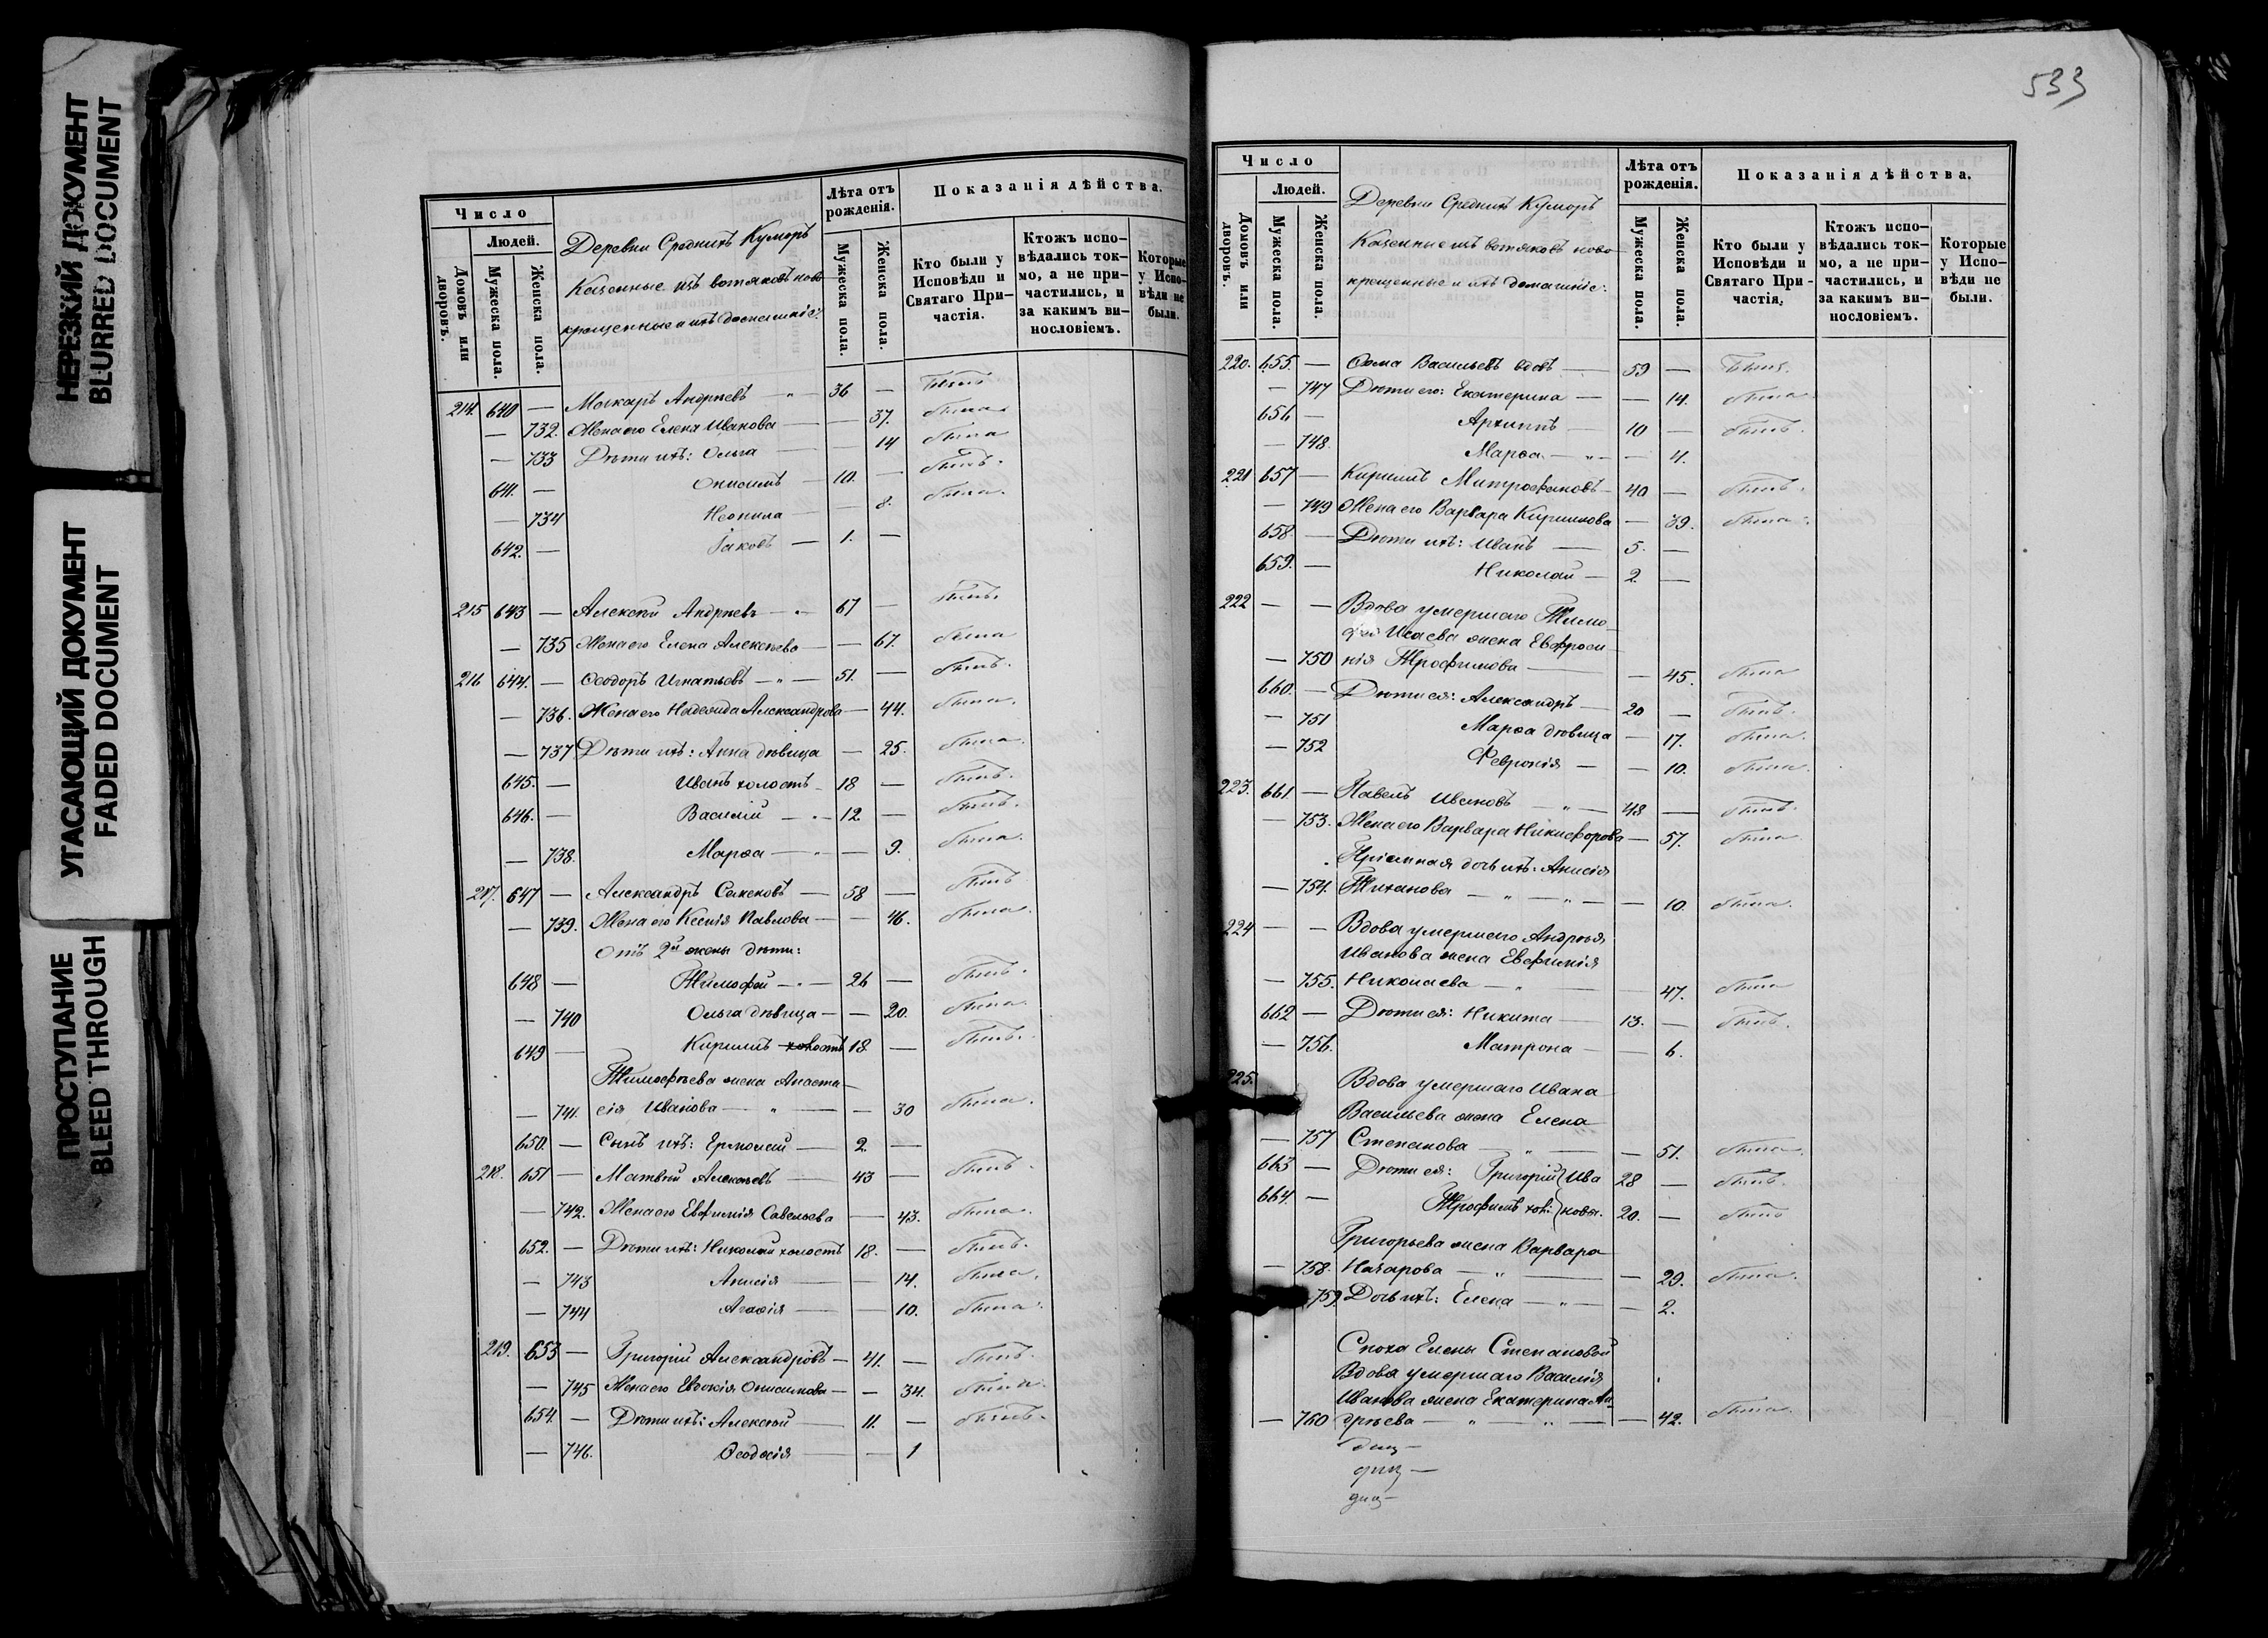 НЕРЕЗКИЙ ДОКУМЕНТ
BLURRED DOCUMENT
УГАСАЮЩИЙ ДОКУМЕНТ
FADED DOCUMENT
ПРОСТУПАНИЕ
BLEED THROUGH
Число
Людей.
Домовъ или дворовъ.
Мужеска пола.
Женска пола.
Деревни Среднихъ Куморъ
Казенные изъ вотяковъ ново
крещенные и ихъ домашніе:
Лѣта отъ рожденія.
Мужеска пола.
Женска пола.
Показанія дѣйства.
Кто были у Исповѣди и Святаго При-частія.
Ктожъ испо-вѣдались ток-мо, а не при-частились, и за какимъ ви-нословіемъ.
Которые у Испо-вѣди не были.
214. 640 — Макаръ Андреевъ — 36 — былъ
— 732. Жена его Елена Иванова — — 37. была
— 733 Дѣти ихъ: Ольга — 14 была
641. — Онисимъ — 10. — былъ.
— 734 Неонила — — 8. была.
642. — Іаковъ — 1. —
215 643 — Алексѣй Андреевъ — 67 — былъ.
— 735 Жена его Елена Алексѣева — — 67. была
216 644. — Ѳеодоръ Игнатьевъ — 51. — былъ.
— 736. Жена его Надежда Александрова — 44. была.
— 737 Дѣти ихъ: Анна дѣвица — 25. была.
645. — Иванъ холостъ 18 — былъ.
646. — Василій — 12 — былъ.
— 738. Марѳа — — 9. была.
217. 647 — Александръ Семеновъ — 58 — былъ
— 739. Жена его Ксенія Павлова — — 46. была.
Отъ 2й жены дѣти:
648 — Тимофей — 26 — былъ.
— 740 Ольга дѣвица — — 20. была.
649 — Кириллъ холостъ 18 — былъ.
Тимофеева жена Анаста—
— 741. сія Иванова — — 30 была.
650. — Сынъ ихъ: Ермолай — 2 —
218. 651 — Матвѣй Алексѣевъ — 43 — былъ.
— 742. Жена его Евфимія Савельева — 43. была.
652. — Дѣти ихъ: Николай холостъ 18. — былъ.
— 743 Анисія — — 14. была.
— 744 Агаѳія — — 10. была.
219. 653 — Григорій Александровъ — 41. — былъ.
— 745 Жена его Евдокія Онисимова — — 34. была.
654 — Дѣти ихъ: Алексѣй — 11. — былъ.
— 746. Ѳеодосія — — 1
533
Число
Людей.
Домовъ или дворовъ.
Мужеска пола.
Женска пола.
Деревни Среднихъ Куморъ
Казенные изъ вотяковъ ново
крещенные и ихъ домашніе:
Лѣта отъ рожденія.
Мужеска пола.
Женска пола.
Показанія дѣйства.
Кто были у Исповѣди и Святаго При-частія.
Ктожъ испо-вѣдались ток-мо, а не при-частились, и за какимъ ви-нословіемъ.
Которые у Испо-вѣди не были.
220. 655. — Ѳома Васильевъ вдовъ — 59 — былъ.
— 747 Дѣти его: Екатерина — — 14. была.
656 — Архиппъ — 10 — былъ.
— 748. Марѳа — — 4.
221 657 — Кириллъ Митрофановъ — 40 — былъ.
— 749 Жена его Варвара Кириллова — 39. была.
658. — Дѣти ихъ: Иванъ — 5. —
659. — Николай — 2 —
222 — — Вдова умершаго Тимо—
фея Исаева жена Евфроси
— 750 нія Трофимова — — 45. была
660. — Дѣти ея: Александръ — 20 — былъ.
— 751 Марѳа дѣвица — 17. была.
— 752 Февронія — — 10. была.
223. 661. — Павелъ Ивановъ — 48 — былъ.
— 753. Жена его Варвара Никифорова — 57. была.
Пріемная дочь ихъ: Анисія
— 754. Тиханова — — 10. была.
224 — — Вдова умершаго Андрея
Иванова жена Евфимія
— 755. Николаева — 47. была
662 — Дѣти ея: Никита — 13. — былъ.
— 756. Матрона — — 6.
225. Вдова умершаго Ивана
Васильева жена Елена
— 757 Степанова — — 51. была.
663 — Дѣти ея: Григорій } Ива 28 — былъ.
664. — Трофимъ хол: } новы. 20. — былъ
Григорьева жена Варвара
— 758. Назарова — — 29. была.
759. Дочь ихъ: Елена — — 2.
Сноха Елены Степановой
Вдова умершаго Василія
Иванова жена Екатерина Ан
— 760 дреева — — 42. была.